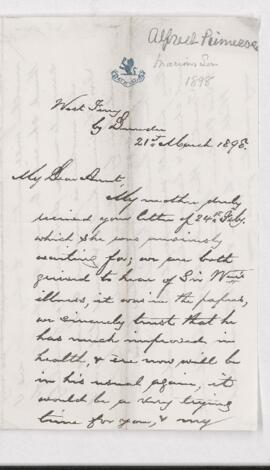 Alfred Primrose
Marion's Son
1898
West Ferry
By Dundee
21st March 1898.
My Dear Aunt,
My mother duly
received your letter of 24th Feby.
which she was anxiously
waiting for; we are both
grieved to hear of Sir Wm's
illness, it was in the papers,
we sincerely trust that he
has much improved in
health, & ere now will be
in his usual again, it
would be a very trying
time for you, & my